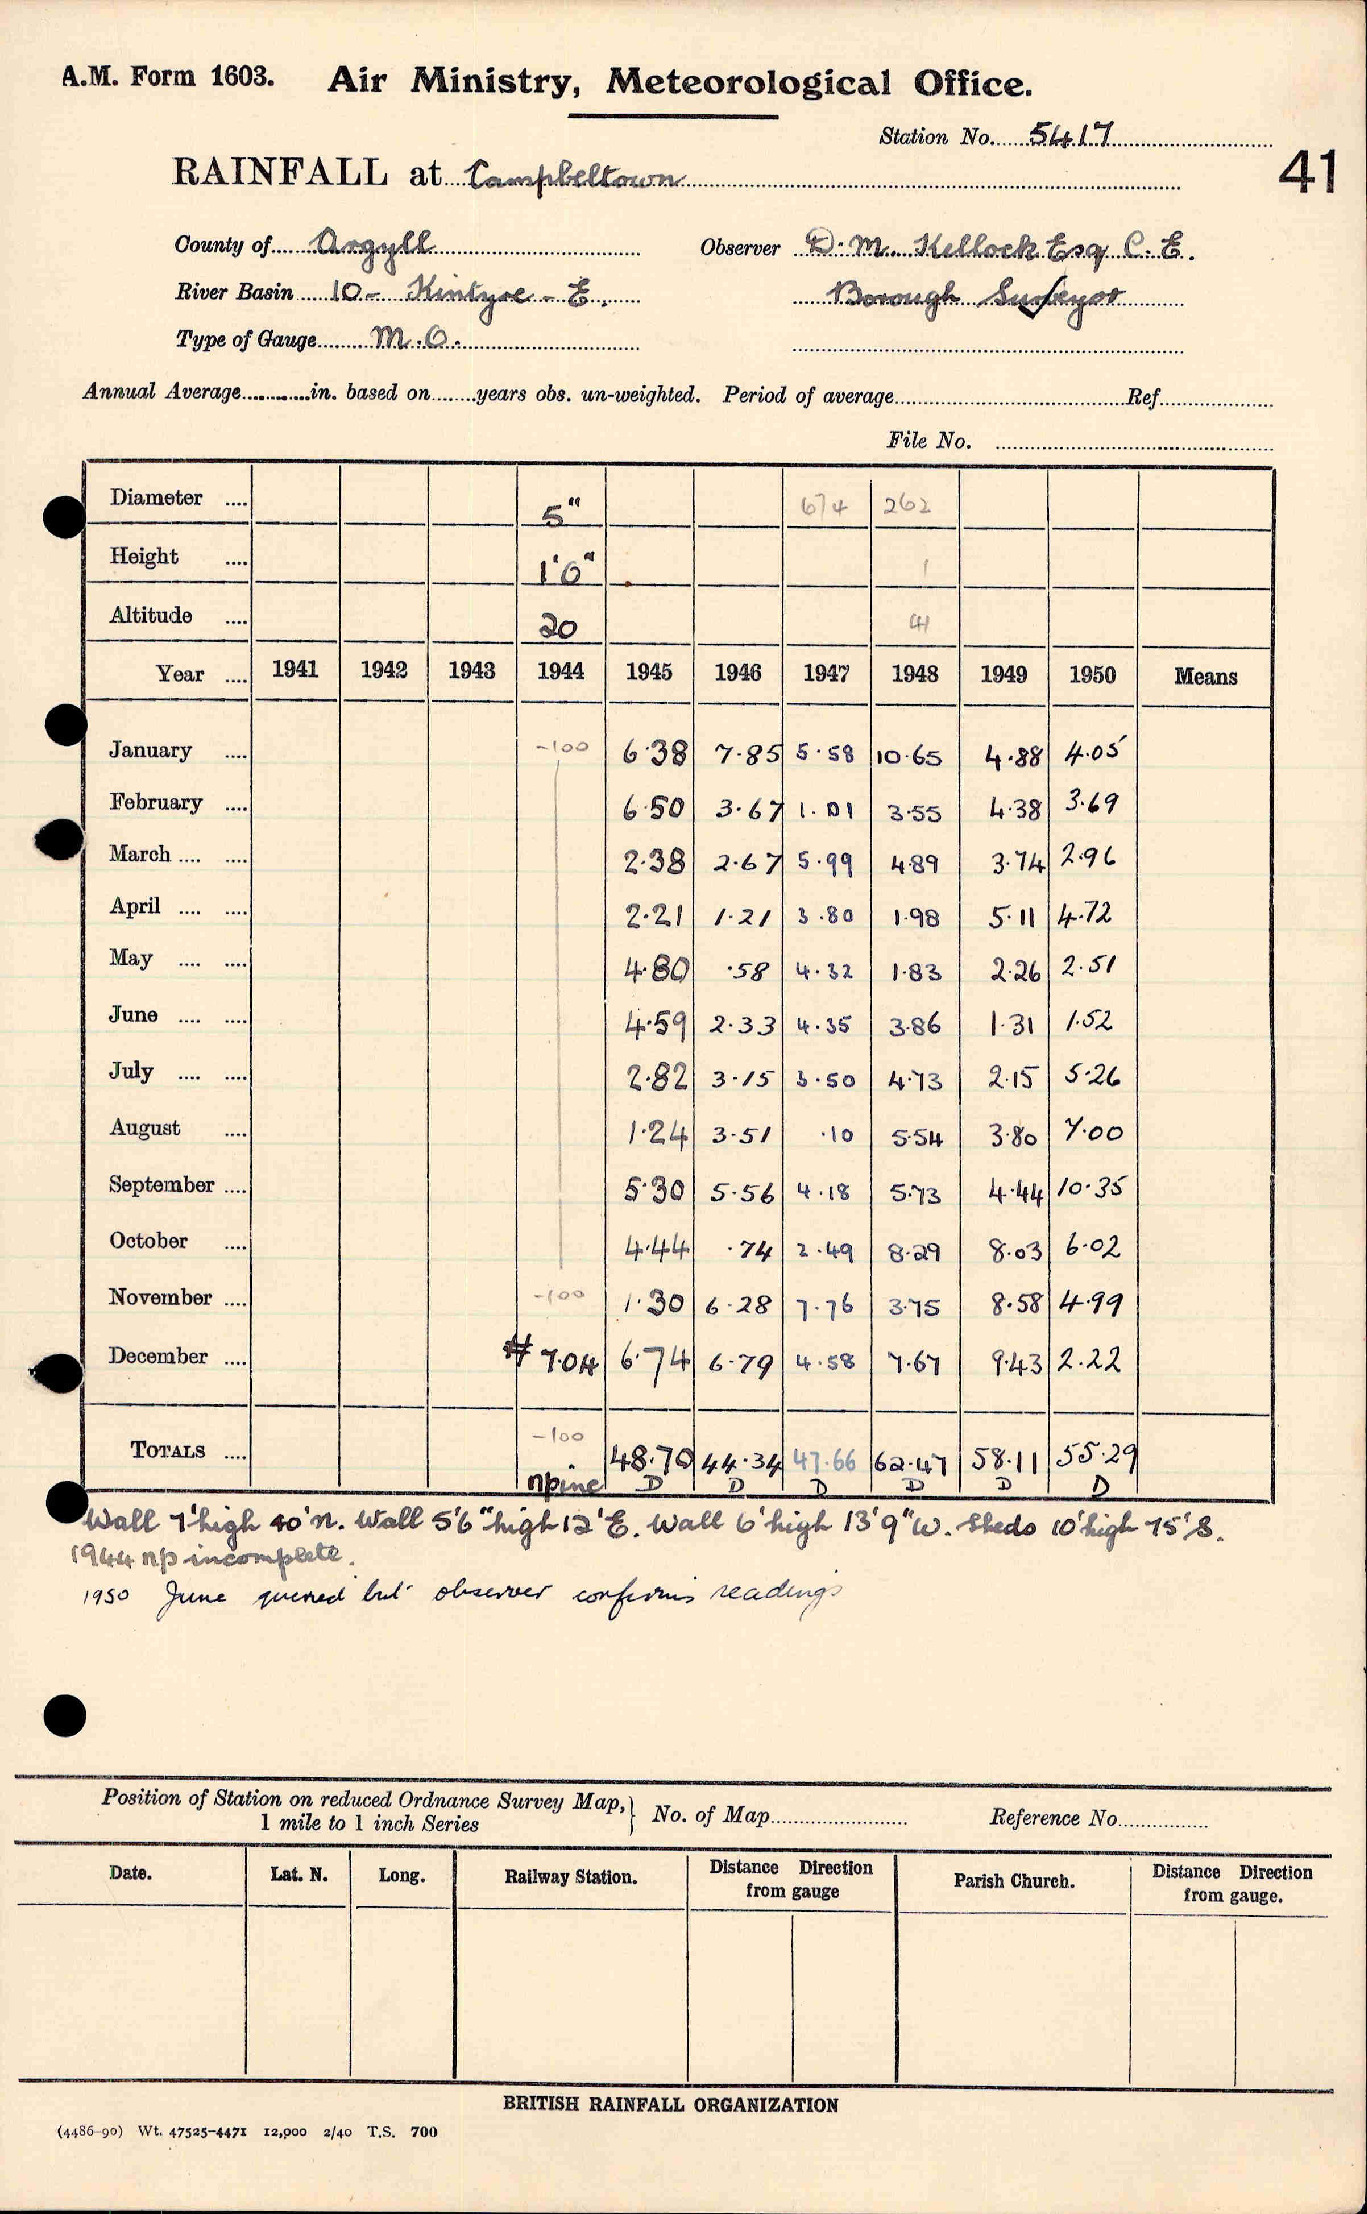 A.M. Form 1603. Air Ministry, Meteorological Office.
Station No. 5417
41
RAINFALL at Campbeltown
County of Argyll Observer D. M. Kellock Esq C. E.
River Basin 10 - Kintyre - E. Borough Surveyor
Type of Gauge M.O.
Annual Average in. based on years obs. un-weighted. Period of average Ref
File No.
Diameter 5" 674 262
Height 1'0" 1
Altitude 20 41
Year 1941 1942 1943 1944 1945 1946 1947 1948 1949 1950 Means
January -100 6.38 7.85 5.58 10.65 4.88 4.05
February 6.50 3.67 1.01 3.55 4.38 3.69
March 2.38 2.67 5.99 4.89 3.74 2.96
April 2.21 1.21 3.80 1.98 5.11 4.72
May 4.80 .58 4.32 1.83 2.26 2.51
June 4.59 2.33 4.35 3.86 1.31 1.52
July 2.82 3.15 3.50 4.73 2.15 5.26
August 1.24 3.51 .10 5.54 3.80 7.00
September 5.30 5.56 4.18 5.73 4.44 10.35
October 4.44 .74 2.49 8.29 8.03 6.02
November -100 1.30 6.28 7.76 3.75 8.58 4.99
December # 7.04 6.74 6.79 4.58 7.67 9.43 2.22
TOTALS -100 48.70 44.34 47.66 62.47 58.11 55.29
npinc D D D D D D
Wall 7' high 40' N. Wall 5'6" high 12' E. Wall 6' high 13'9" W. Sheds 10' high 75' S.
1944 np incomplete.
1950 June queried but observer confirms readings
Position of Station on reduced Ordnance Survey Map, No. of Map Reference No.
1 mile to 1 inch Series
Date. Lat. N. Long. Railway Station. Distance Direction from gauge Parish Church. Distance Direction from gauge.
BRITISH RAINFALL ORGANIZATION
(4486-90) Wt. 47525-4471 12,000 2/40 T.S. 700